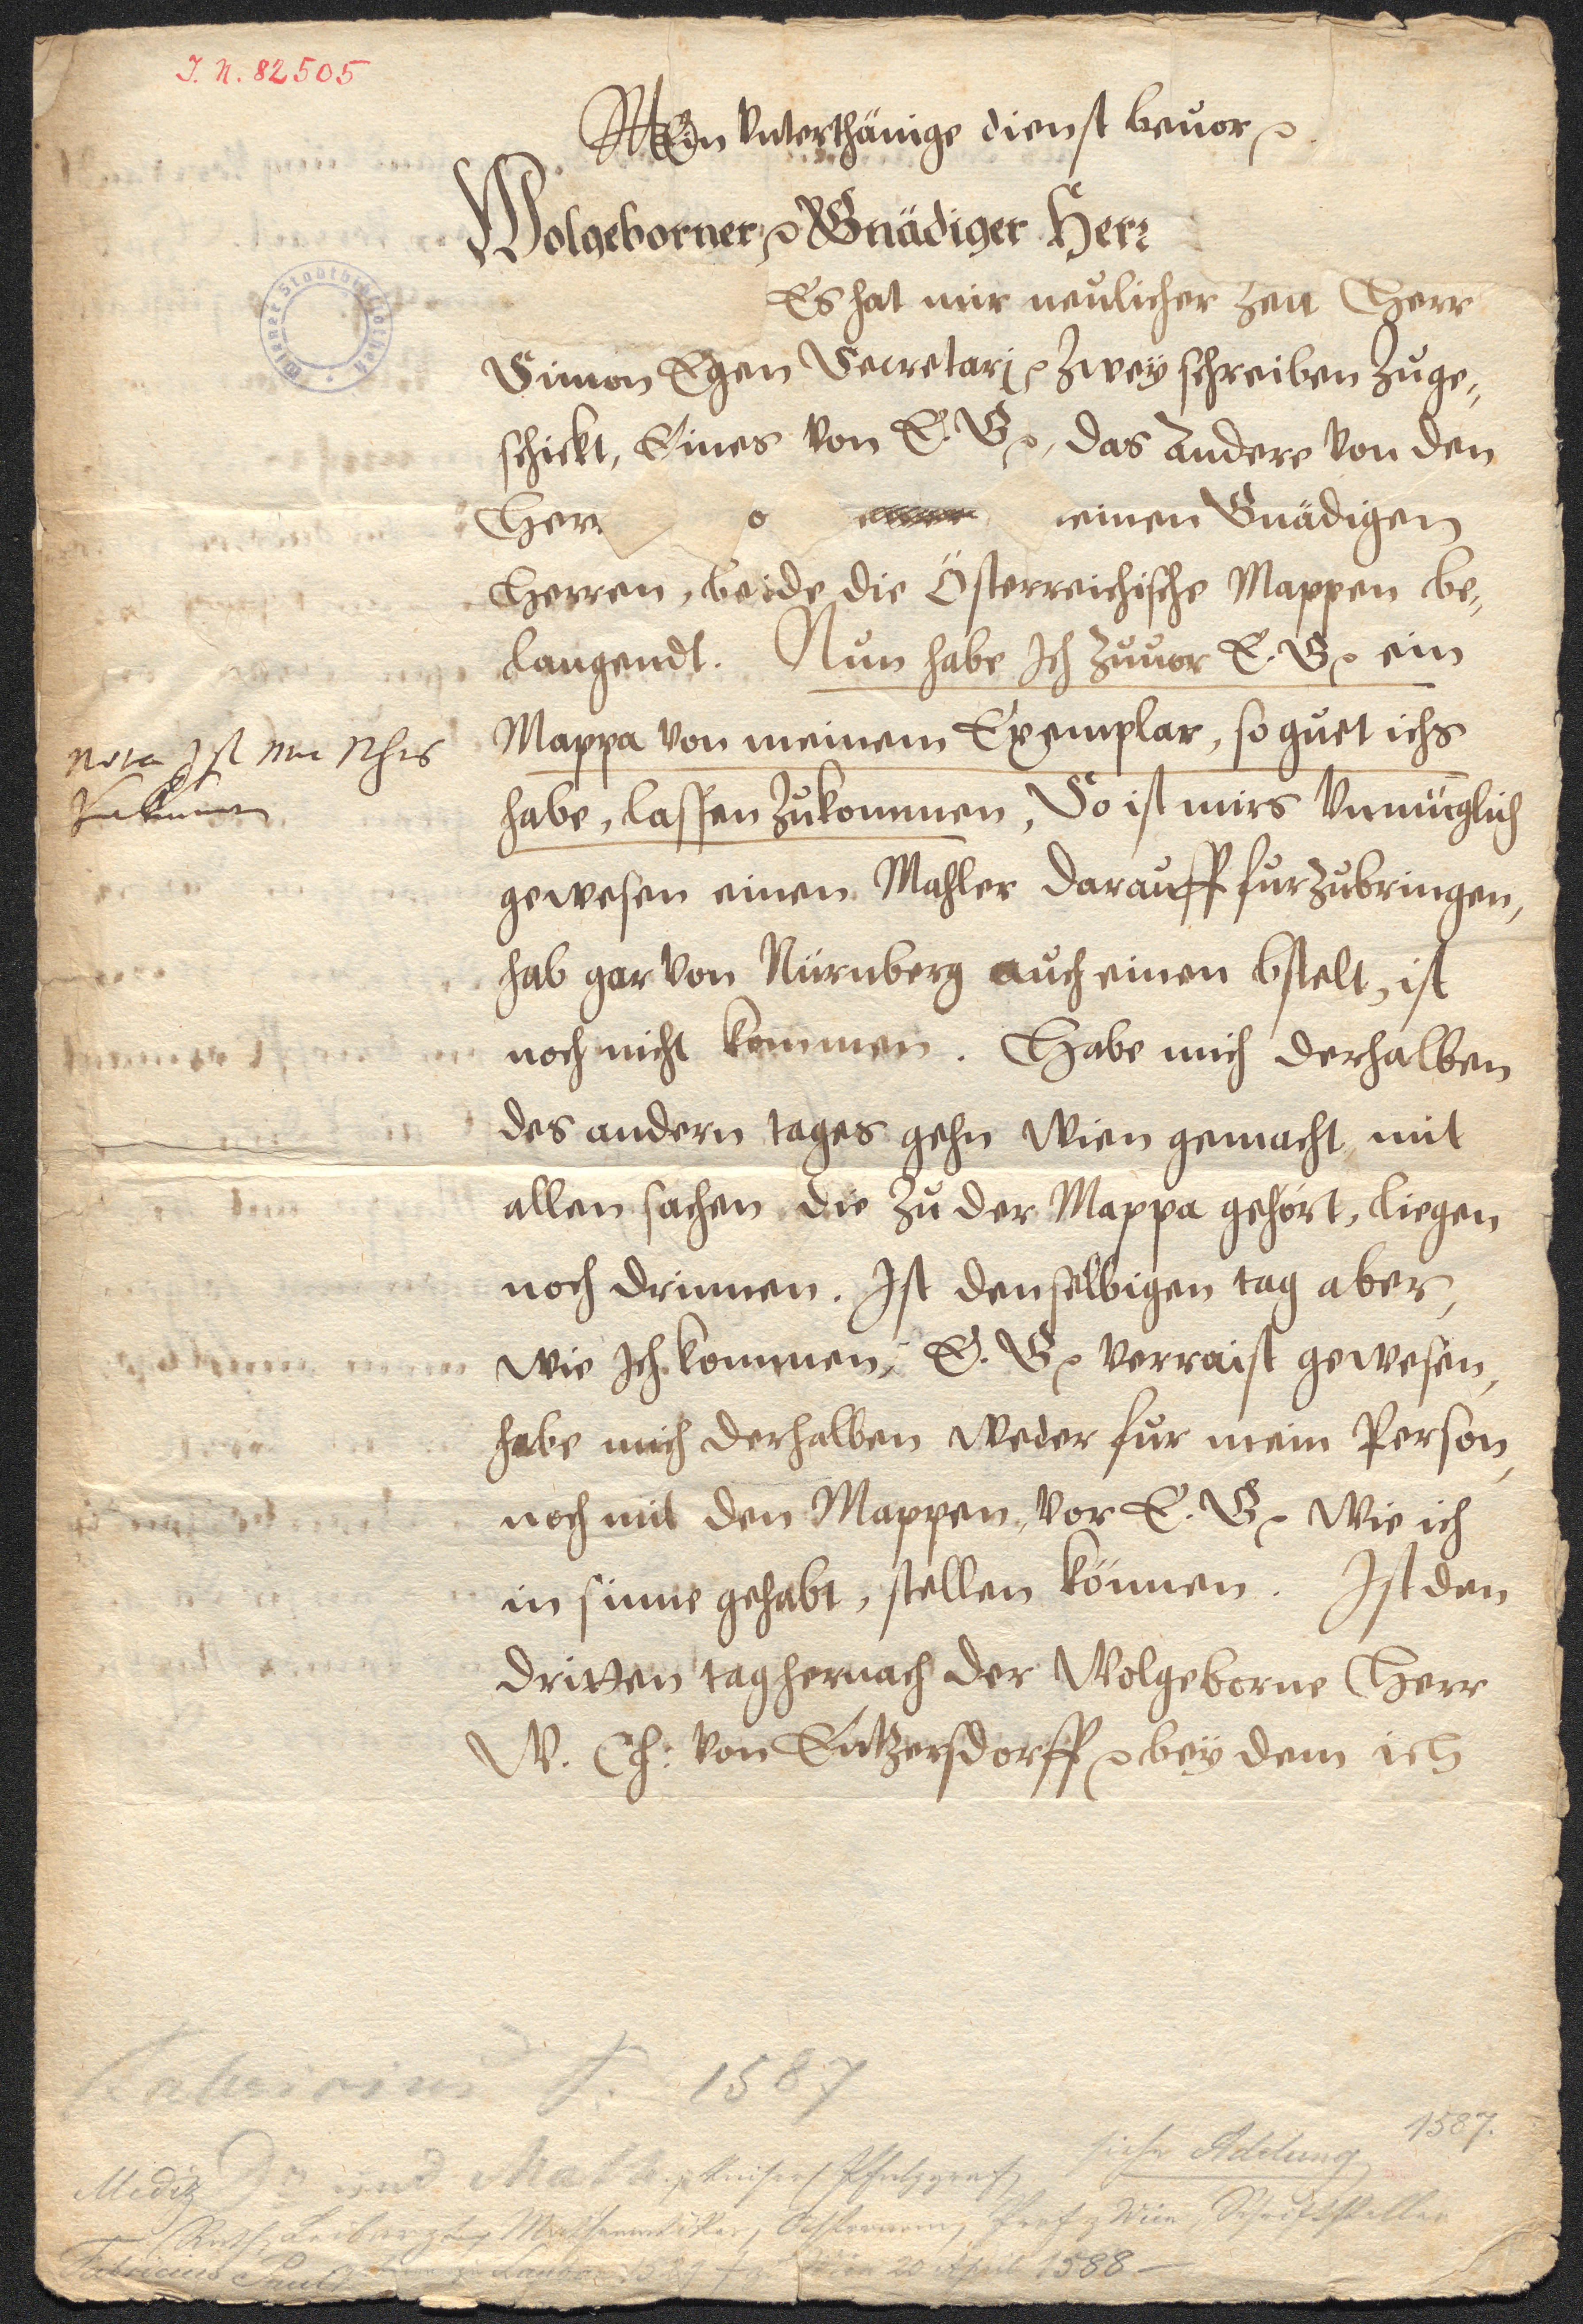 I. N. 82505
MEin Vnterthänige dienst beuor
Wolgeborner Gnädiger Herr
Es hat mir neulicher zeit Herr
Simon Egen Secretarj zwey schreiben zuge„
schickt, Eines von E. G. das Andere von den
Herr einen Gnädigen
Herren, beide die Österreichische Mappen be„
langendt. Nun habe Ich zuuor E. G. ein
Mappa von meinem Exemplar, so guet ichs
nota Ist mir
habe, lassen zukommen, So ist mirs Vnmüglich
gewesen einen Mahler darauff furzubringen,
hab gar von Nürnberg auch einen bstelt, ist
noch nicht kommen. Habe mich derhalben
des andern tages gehn Wien gemacht mit
allen sachen die zu der Mappa gehört, liegen
noch drinnen. Ist denselbigen tag aber,
wie Ich kommen, E. G. verraist gewesen,
habe mich derhalben weder fur mein Person,
noch mit den Mappen, vor E. G. wie ich
in sinne gehabt, stellen können. Ist den
dritten tag hernach der Wolgeborne Herr
W. Ch: von Entzersdorff bey dem ich
Wiener Stadtbibliothek
Fabricius P. 1587
1587.
siehe Adelung
Mediz Dr und Math. kaiserl Pfalzgraf
Rath, Leibarzt, Mathematiker, Astronom, Prof z Wien, Schriftsteller
Fabricius Paul 1529 Wien 20 April 1588 –